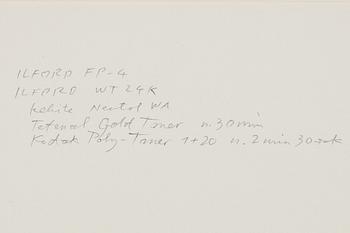 ILFORD FP-4
ILFORD WT 24K
Kehite Neutol WA
Tetenal Gold Toner n. 30 min
Kodak Poly-Toner 1+20 n. 2 min 30 sek